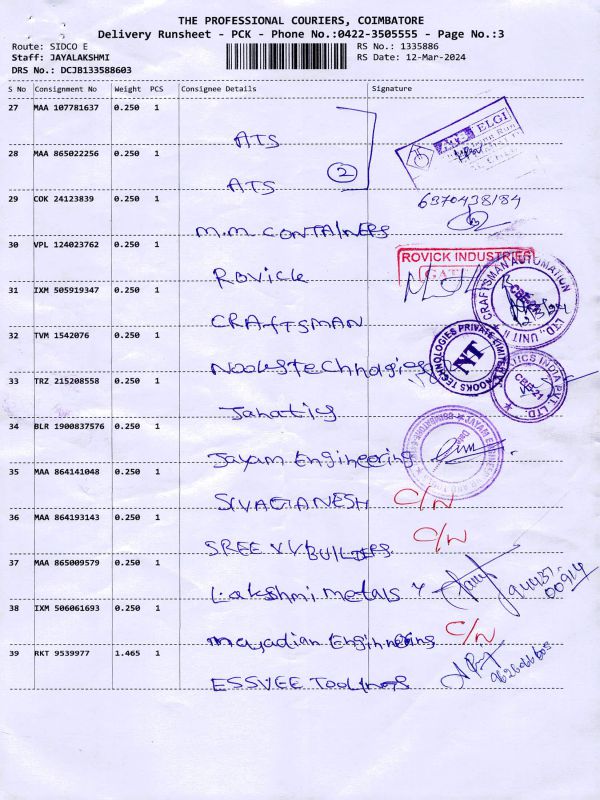 THE PROFESSIONAL COURIERS, COIMBATORE
Delivery Runsheet - PCK - Phone No.:0422-3505555 - Page No.:3
Route: SIDCO E
RS No.: 1335886
Staff: JAYALAKSHMI
RS Date: 12-Mar-2024
DRS No.: DCJB133588603
S No Consignment No Weight PCS Consignee Details Signature
27 MAA 107781637 0.250 1
ATS
ELGI
28 MAA 865022256 0.250 1
2
ATS
29 COK 24123839 0.250 1
6370438184
M.M CONTAINERS
30 VPL 124023762 0.250 1
ROVICK INDUSTRIES
Rovick
31 IXM 505919347 0.250 1
CRAFTSMAN AUTOMATION LTD., UNIT II
CRAftSMAN
32 TVM 1542076 0.250 1
NOOKS TECHNOLOGIES PRIVATE LIMITED
NT
33 TRZ 215208558 0.250 1
CBE-21
Janatics
34 BLR 1900837576 0.250 1
Jayam Engineering
35 MAA 864141048 0.250 1
SIVAGANESH C/N
36 MAA 864193143 0.250 1
SREE VV BUILDERS C/N
37 MAA 865009579 0.250 1
Lakshmi metals
94437-00914
38 IXM 506061693 0.250 1
C/N
39 RKT 9539977 1.465 1
ESSVEE Toolings